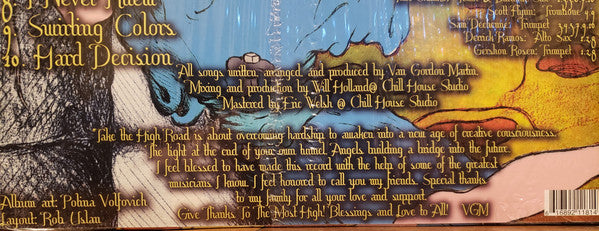 8. I Never Knew
9. Surrting Colors
10. Hard Decision
Scott Flynn: Trombone
Sam Dechenne: Trumpet
Derrick Ramos: Alto Sax
Gershon Rosen: Trumpet
All songs written, arranged, and produced by Van Gordon Martin.
Mixing and production by Will Holland@ Chill House Studio
Mastered by Eric Welsh @ Chill House Studio
"Take the High Road is about overcoming hardship to awaken into a new age of creative consciousness.
The light at the end of your own tunnel. Angels building a bridge into the future.
I feel blessed to have made this record with the help of some of the greatest
musicians I know. I feel honored to call you my friends. Special thanks
to my family for all your love and support.
Give Thanks To The Most High! Blessings and Love to All! VGM
Album art: Polina Volfovich
Layout: Rob Uslan
6 16892 11814